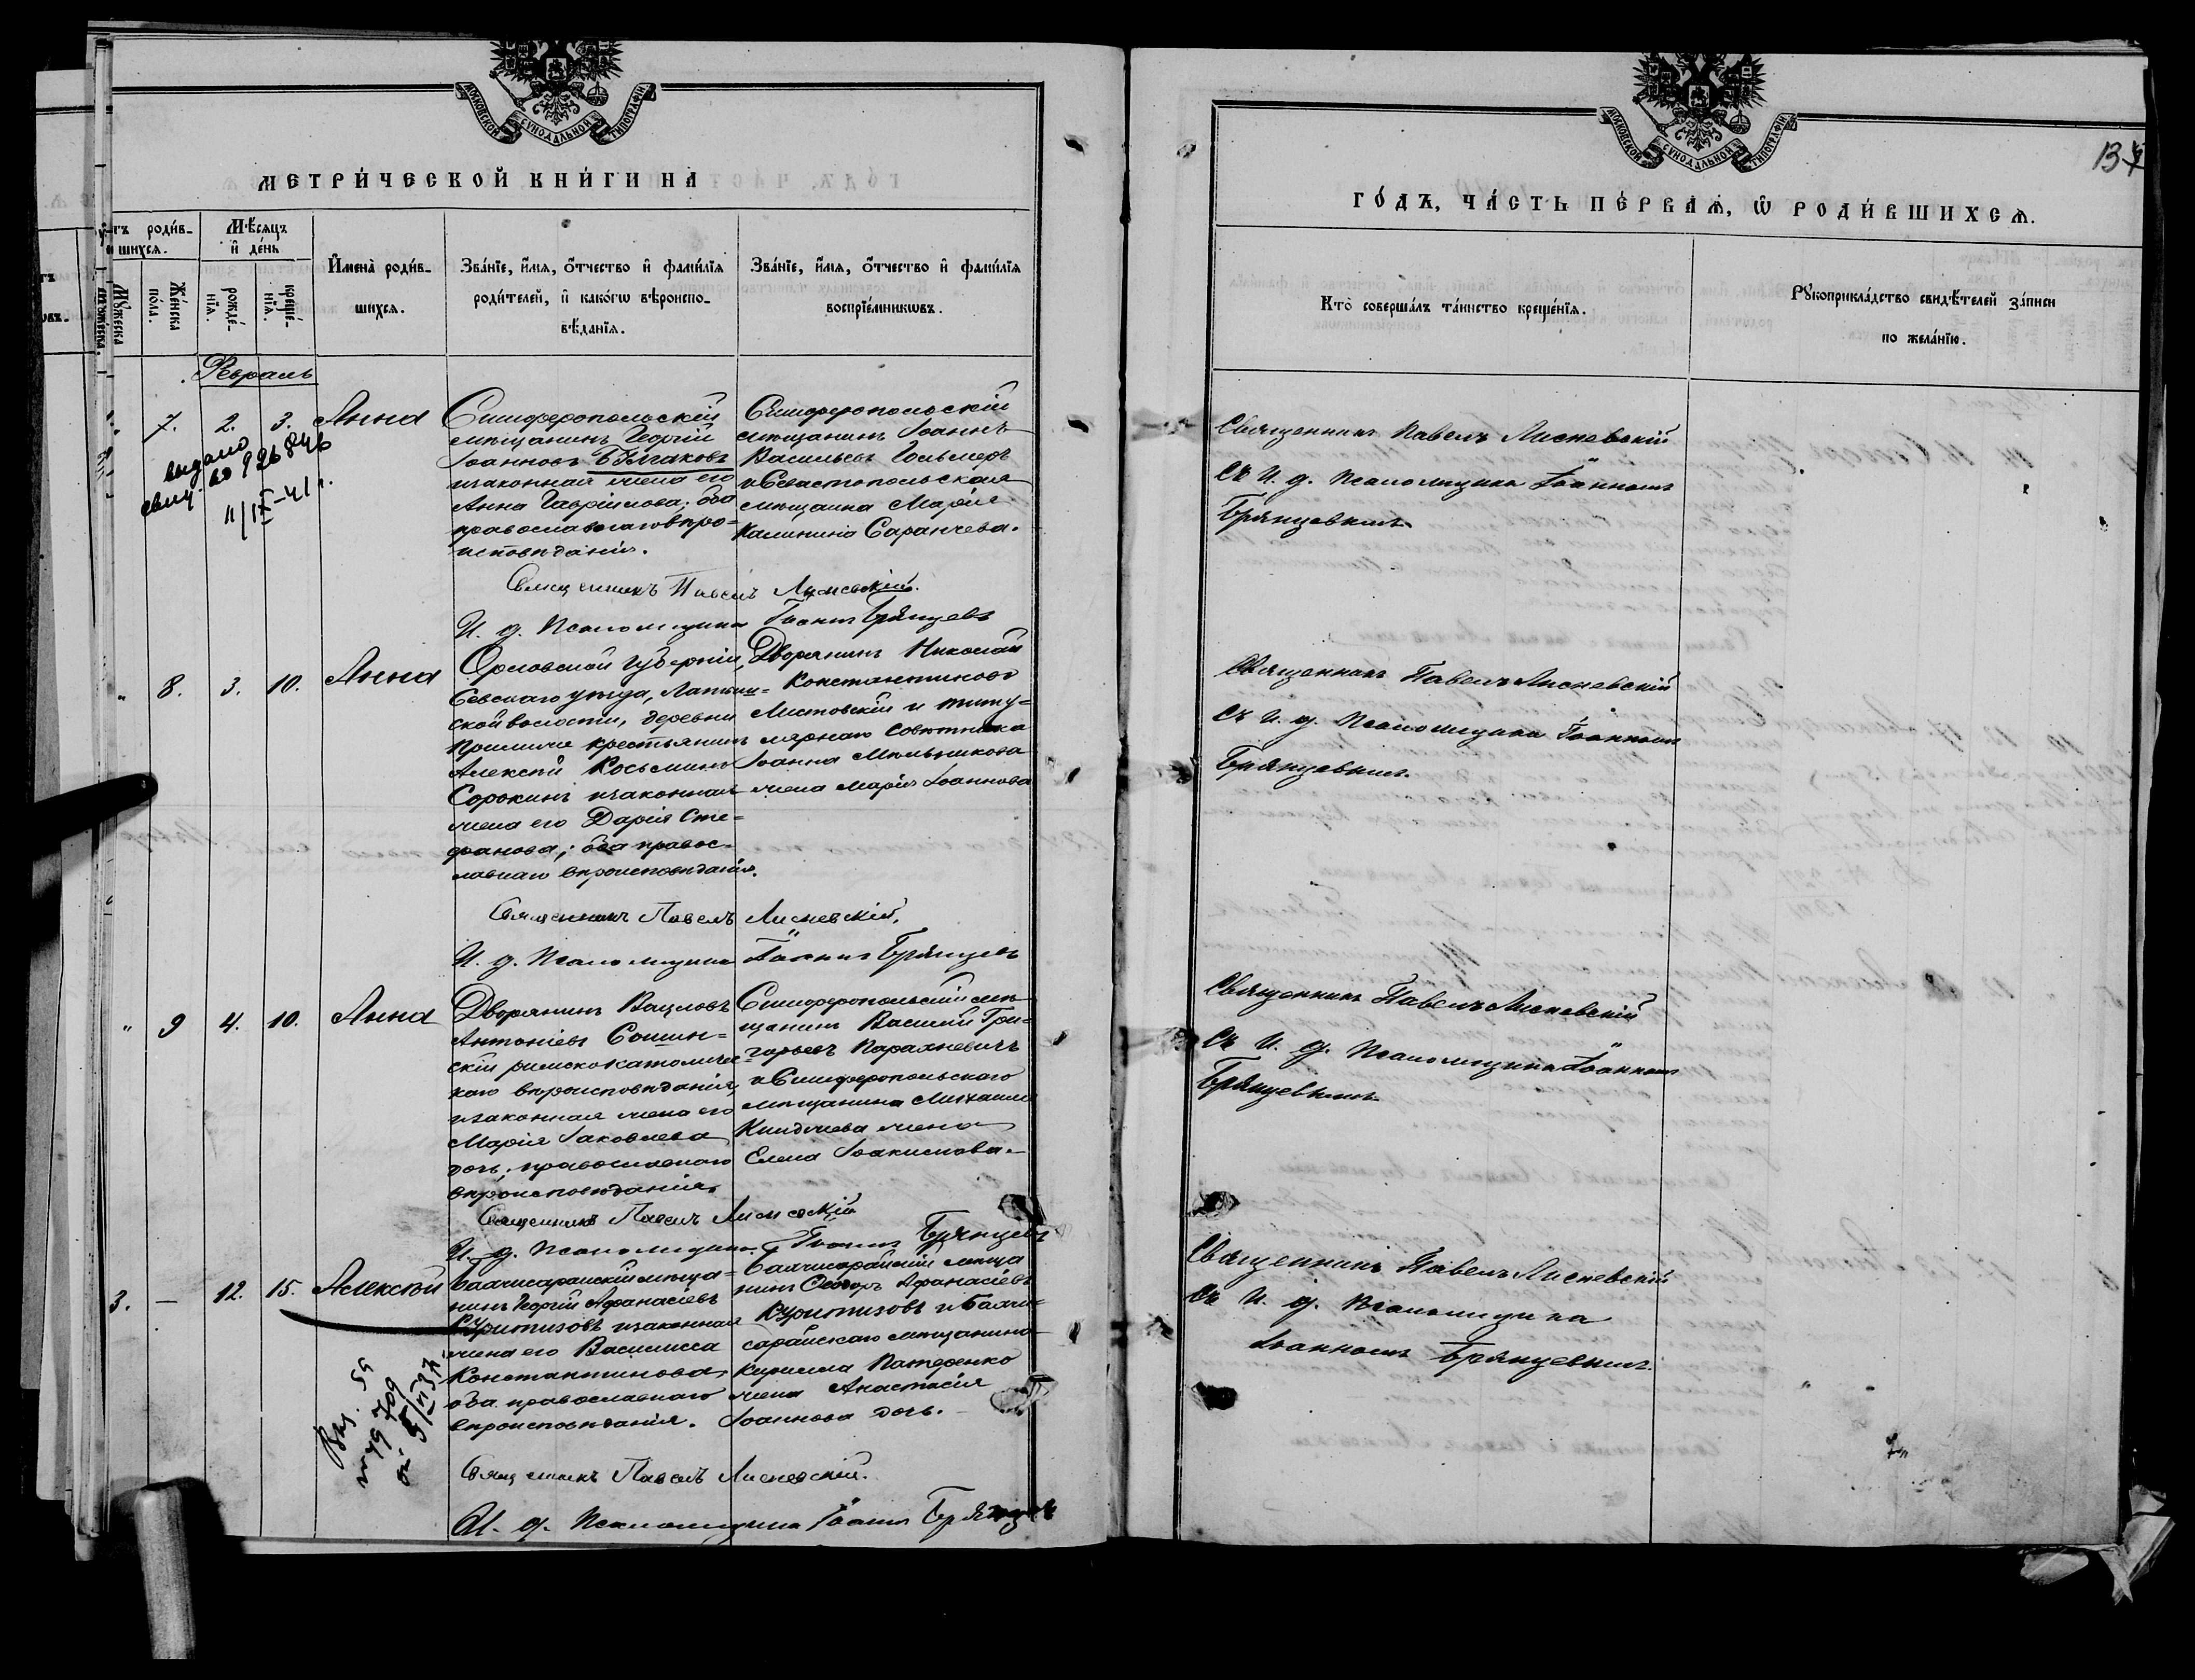 МОСКОВСКОЙ СУНОДАЛЬНОЙ ТИПОГРАФІИ
МЕТРИ́ЧЕСКОЙ КНИ́ГИ НА
родив-
шихся.
Мѣсяцъ
и҆ де́нь
Мꙋжеска
Же́нска
по́ла.
рожде́-
нїѧ.
креще́-
нїѧ.
И҆мена̀ роди́в-
шихсѧ.
Зва́нїе, и҆́мѧ, ѻ҆́тчество и҆ фами́лїѧ
роди́телей, и҆ како́гѡ вѣроиспо-
вѣ́данїѧ.
Зва́нїе, и҆́мѧ, ѻ҆́тчество и҆ фами́лїѧ
воспрїе́мникѡвъ.
Февраль
7. 2. 3. Анна
выдано
свид. 926846
11/IX-41 г.
Симферопольскій
мѣщанинъ Георгій
Іоанновъ Булгаковъ
и законная жена его
Анна Гавріилова; оба
православнаго вѣро-
исповѣданія.
Симферопольскій
мѣщанинъ Іоаннъ
Васильевъ Гольмеръ
и Севастопольская
мѣщанка Марія
Калинина Саранчева.
Священникъ Павелъ Лисневскій.
И. д. Псаломщика Іоаннъ Брянцевъ
" 8. 3. 10. Анна
Орловской губерніи,
Севскаго уѣзда,
ской волости, деревни
крестьянинъ
Алексѣй Косьминъ
Сорокинъ и законная
жена его Дарія Сте-
фанова; оба правос-
лавнаго вѣроисповѣданія.
Дворянинъ Николай
Константиновъ
Листовскій и титу-
лярнаго совѣтника
Іоанна Мельникова
жена Марія Іоаннова
Священникъ Павелъ Лисневскій.
И. д. Псаломщика Іоаннъ Брянцевъ
" 9 4. 10. Анна
Дворянинъ Вацловъ
Антоніевъ Сошин-
скій римскокатоличес-
каго вѣроисповѣданія,
и законная жена его
Марія Іаковлева
дочь. православнаго
вѣроисповѣданія.
Симферопольскій мѣ-
щанинъ Василій Гри-
горьевъ Параяневичъ
и Симферопольскаго
мѣщанина Михаила
жена
Елена Іоакимова.
Священникъ Павелъ Лисневскій
И. д. Псаломщика Іоаннъ Брянцевъ
3. — 12. 15. Алексѣй
Бахчисарайскій мѣща-
нинъ Георгій Афанасіевъ
Куритизовъ и законная
жена его Василисса
Константинова
оба православнаго
вѣроисповѣданія.
Бахчисарайскій мѣща
нинъ Ѳеодоръ Афанасіевъ
Куритизовъ и Бахчи-
сарайскаго мѣщанина
Кирилла Патеренко
жена Анастасія
Іоаннова дочь.
Священникъ Павелъ Лисневскій.
И. д. Псаломщика Іоаннъ Брянцевъ
МОСКОВСКОЙ СУНОДАЛЬНОЙ ТИПОГРАФІИ
ГО́ДЪ, ЧА́СТЬ ПЕ́РВАѦ, Ѡ҆ РОДИ́ВШИХСѦ.
Кто̀ соверша́лъ та́инство креще́нїѧ.
Рꙋкоприкла́дство свидѣ́телей за́писи
по жела́нїю.
Священникъ Павелъ Лисневскій
Съ И. д. Псаломщика Іоанномъ
Брянцевымъ.
Священникъ Павелъ Лисневскій
Съ И. д. Псаломщика Іоанномъ
Брянцевымъ.
Священникъ Павелъ Лисневскій
Съ И. д. Псаломщика Іоанномъ
Брянцевымъ
Священникъ Павелъ Лисневскій
Съ И. д. Псаломщика
Іоанномъ Брянцевымъ.